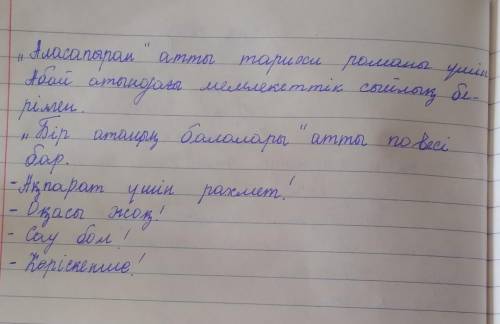 „Аласапыран" атты тарихи романы үшін
Абай атындағы мемлекеттік сыйлық бе-
рілген.
„Бір атаның балалары" атты повесі
бар.
- Ақпарат үшін рахмет!
- Оқасы жоқ!
- Сау бол!
- Көріскенше!